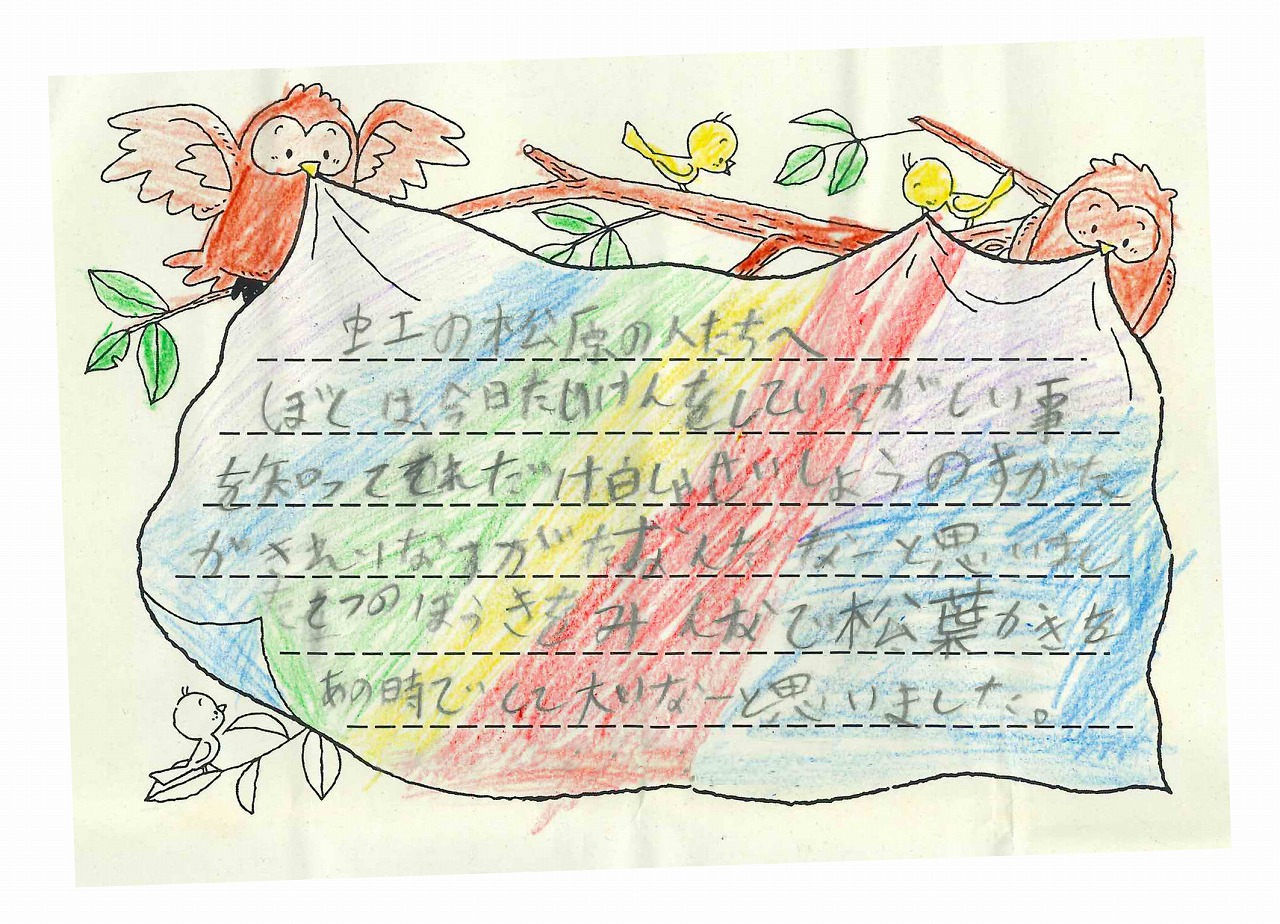 虹の松原の人たちへ
ぼくは、今日たいけんをしていそがしい事
を知ってそれだけ白しゃせいしょうのすがた
がきれいなすがたなんだなーと思いまし
た ほうきをみんなで松葉かきを
あの時で 大いなーと思いました。